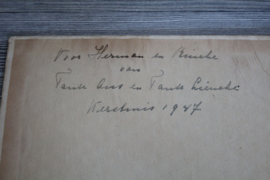 Voor Herman en Rineke
van
Tante Ans en Tante Lieneke
Kerstmis 1947